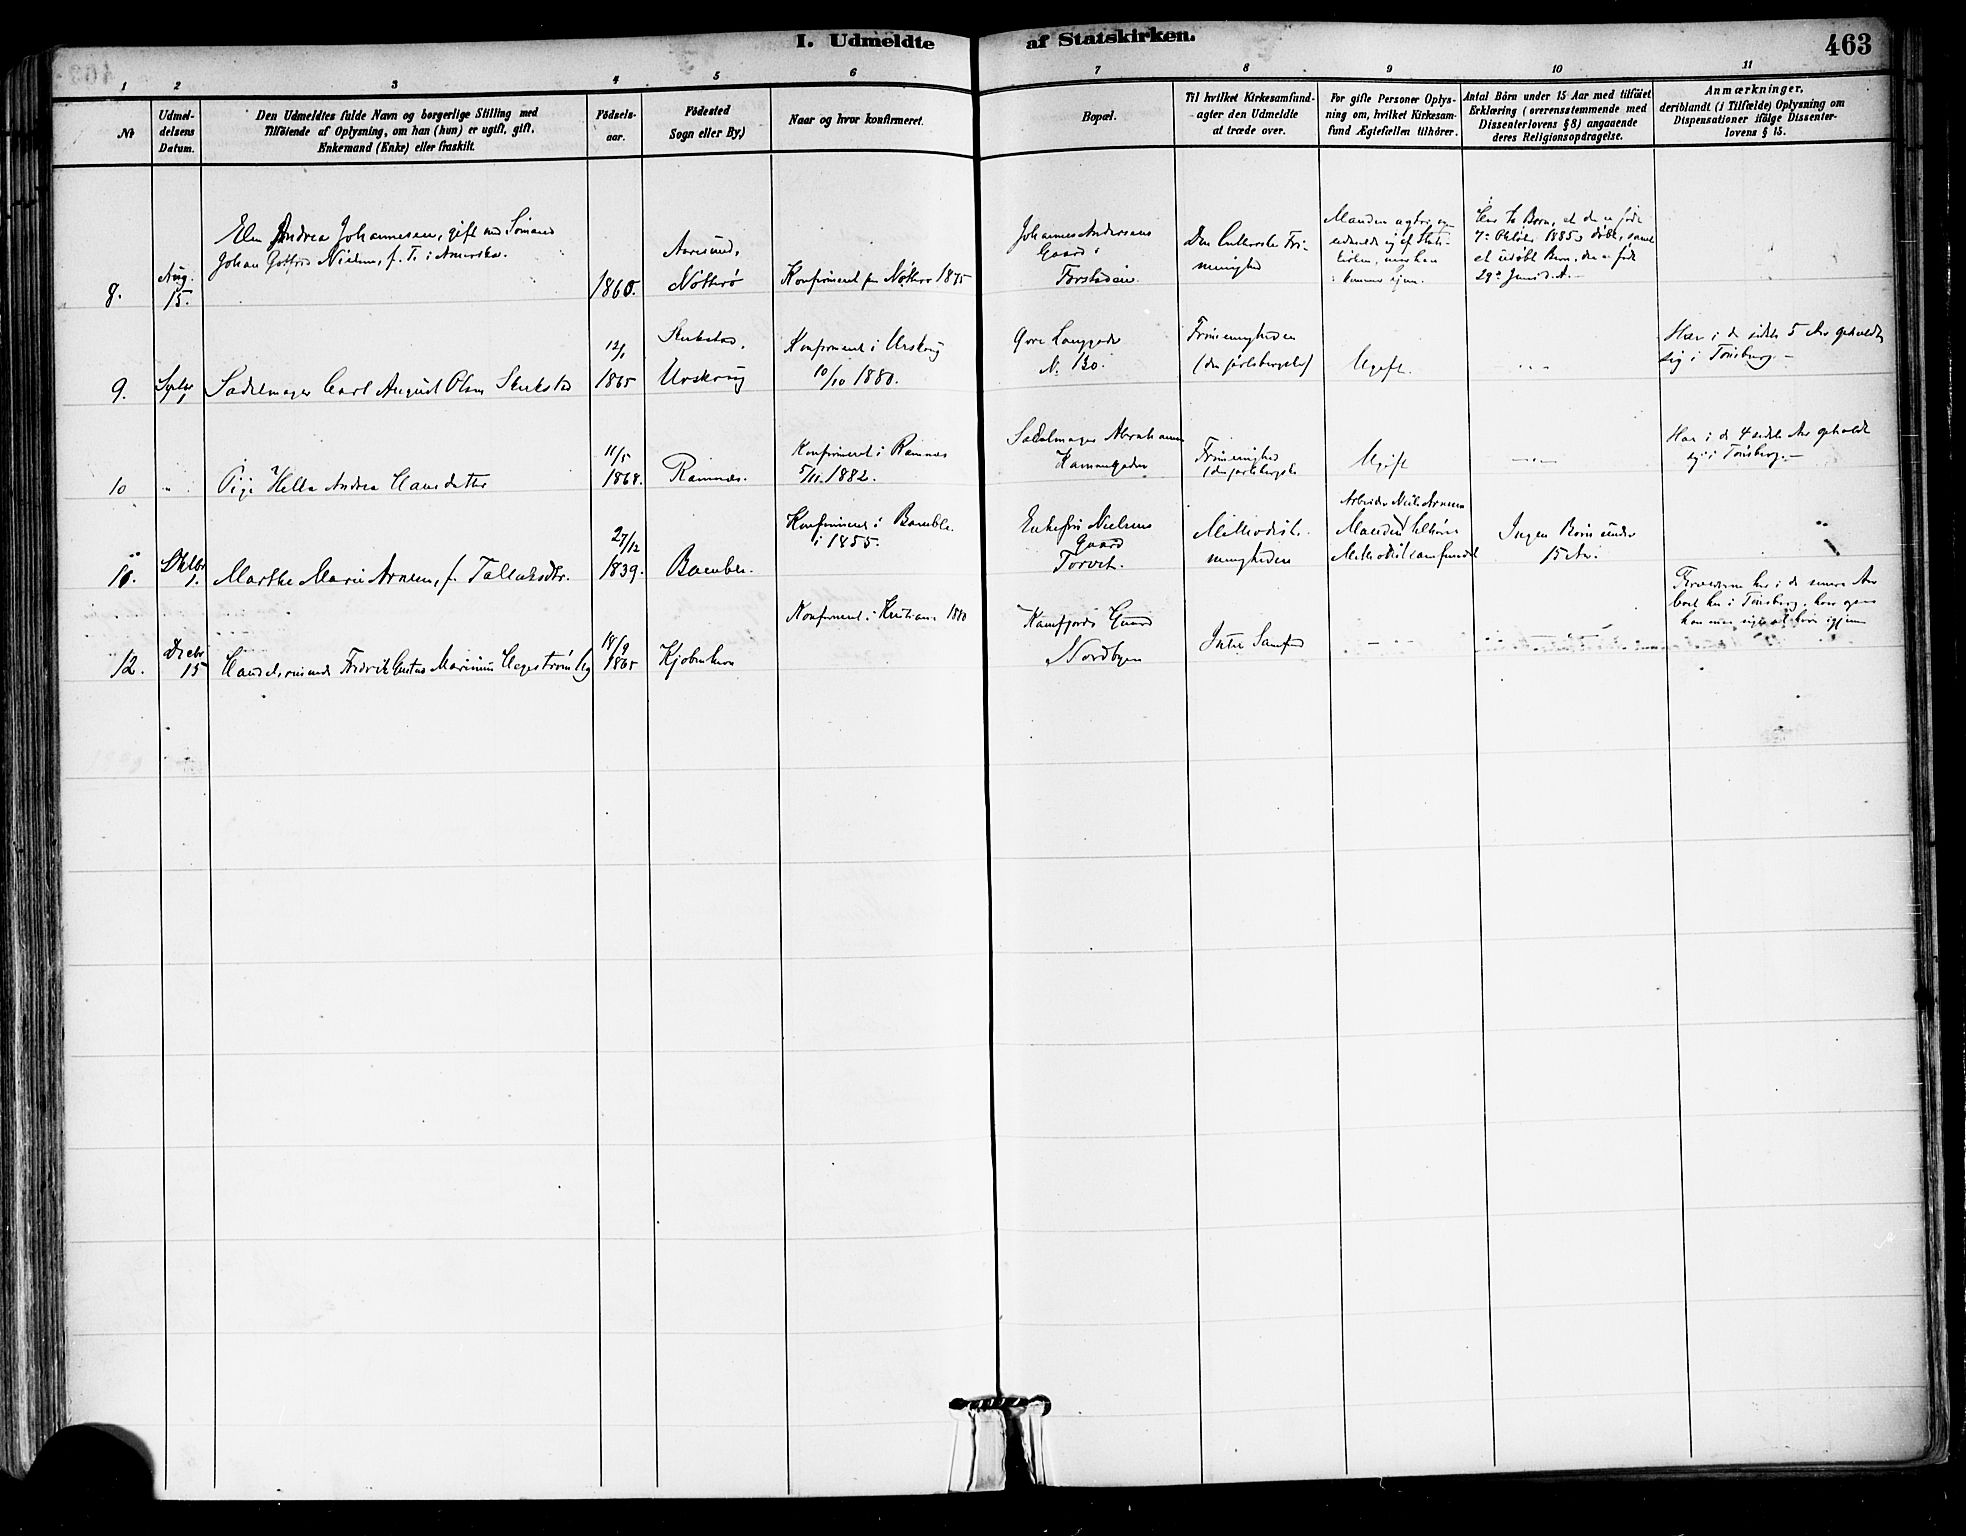 I. Udmeldte af Statskirken.
463
1 2 3 4 5 6 7 8 9 10 11
No
Udmel-
delsens
Datum.
Den Udmeldtes fulde Navn og borgerlige Stilling med
Tilföiende af Oplysning, om han (hun) er ugift, gift,
Enkemand (Enke) eller fraskilt.
Födsels-
aar.
Födested
Sogn eller By.)
Naar og hvor konfirmeret.
Bopæl.
Til hvilket Kirkesamfund-
agter den Udmeldte
at træde over.
For gifte Personer Oplys-
ning om, hvilket Kirkesam-
fund Ægtefællen tilhörer.
Antal Börn under 15 Aar med tilföiet
Erklæring (overensstemmende med
Dissenterlovens § 8) angaaende
deres Religionsopdragelse.
Anmærkninger,
deriblandt (i Tilfælde) Oplysning om
Dispensationer ifölge Dissenter-
lovens § 15.
8.
Aug.
15.
Andrea Johannesen, gift med Sömand
Johan Gotfred Nielsen, f. T. i Amerika.
1860.
Aarsund,
Nötterö
Konfirmeret paa Nötterö 1875
Johannes Andersens
Gaard i
Den Lutherske Fri-
menighed
Manden agter
udmeldt af Stats-
kirken, naar han
kommer hjem.
Har to Börn, et der er född
7de Oktober 1885, döbt, samt
et udöbt Barn, der er född
29de Juni d. A. -
9.
Septbr
1
Sadelmager Carl August Olsen
12/1
1865
Urskoug
Konfirmeret i Urskoug
10/10 1880.
Övre Langgade
N. 130.
Frimenigheden
(den jarlsbergske)
Ugift.
Har i de sidste 5 Aar opholdt
sig i Tönsberg. -
10
Pige Helle Andrea Hansdatter
11/5
1868.
Ramnæs.
Konfirmeret i Ramnæs
5/11 1882.
Sadelmager Abrahamsen
Kammegaden
Frimenighed
(den jarlsbergske
Ugift
Har i de 4 sidste Aar opholdt
sig i Tönsberg. -
11.
Oktbr
1.
Marthe Marie Arnesen, f. Talleksdtr.
27/12
1839.
Bamble.
Konfirmeret i Bamble
i 1855.
Enkefru Nielsens
Gaard
Torvet.
Methodist-
menigheden
Arbeider Niels Arnesen
Manden tilhörer
Methodistsamfundet
Ingen Börn under
15 Aar.
12.
Decbr
15
Handelsreisende Fredrik Gustav Marinius Hagström Ug
18/9
1865
Kjöbenhavn
Konfirmeret i Kristiania 1880
Kamfjords Gaard
Nordbyen
Intet Samfund
har i de senere Aar
boet her i Tönsberg, hvor ogsaa